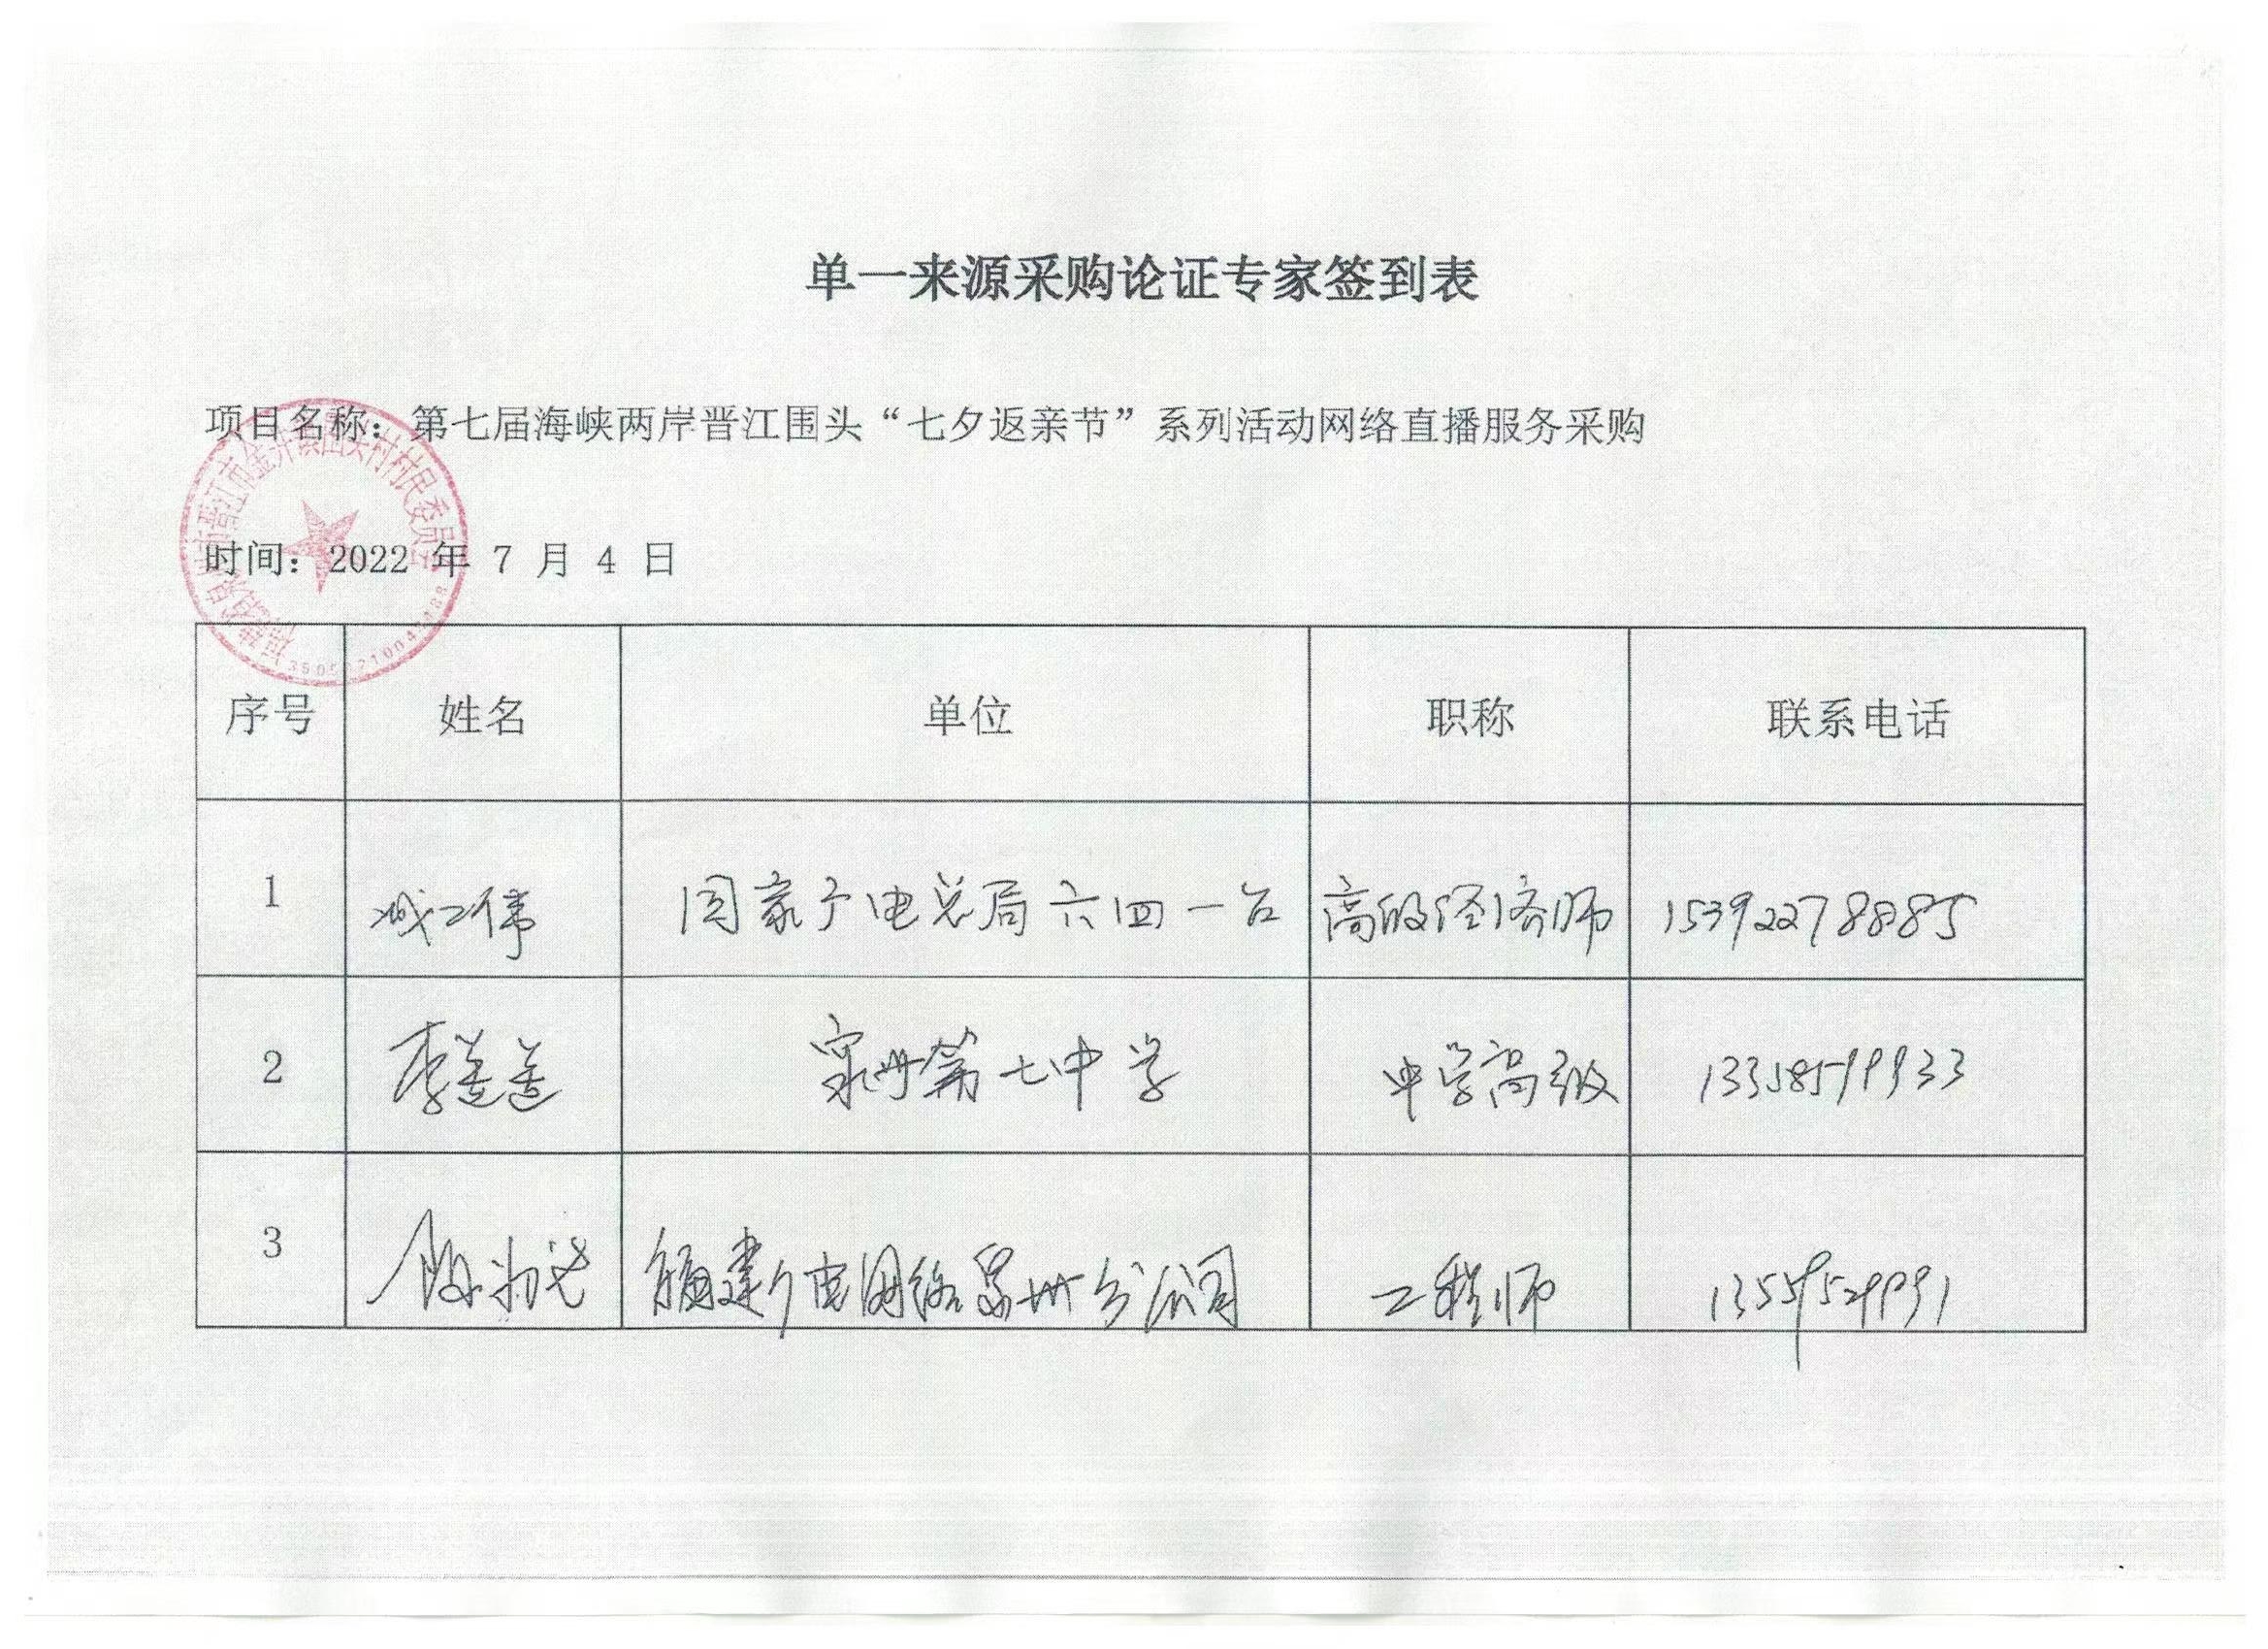 单一来源采购论证专家签到表
项目名称：第七届海峡两岸晋江围头“七夕返亲节”系列活动网络直播服务采购
时间：2022 年 7 月 4 日
序号 姓名 单位 职称 联系电话
1 国家广电总局六四一台 高级经济师 15392278885
2 李莲莲 泉州第七中学 中学高级
3 福建广电网络泉州分公司 工程师